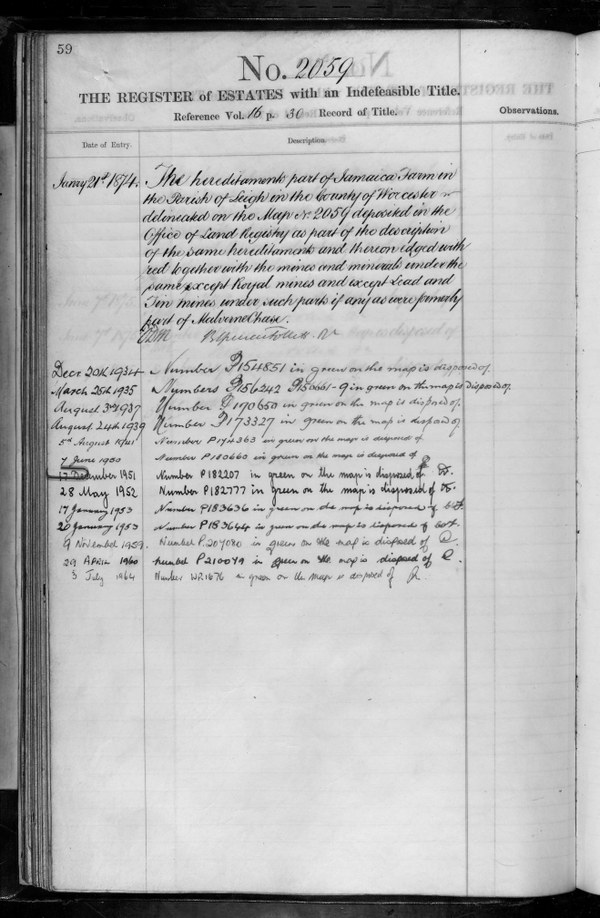 59
No. 2059
THE REGISTER of ESTATES with an Indefeasible Title.
Reference Vol. 16 p. 30 Record of Title.
Observations.
Date of Entry.
Description
Janry 21st 1874.
The hereditaments part of Jamaica Farm in
the Parish of Leigh in the County of Worcester
delineated on the Map No. 2059 deposited in the
Office of Land Registry as part of the description
of the same hereditaments and thereon edged with
red together with the mines and minerals under the
same except Royal mines and except Lead and
Tin mines under such parts if any as were formerly
part of Malvern Chase.
Decr 20th 1934 Number P154851 in green on the map is disposed of.
March 25th 1935 Numbers P156242 in green on the map is disposed of.
August 3rd 1937 Number P170650 in green on the map is disposed of.
August 24th 1939 Number P173327 in green on the map is disposed of
5th August 1941 Number P174363 in green on the map is disposed of
7 June 1950 Number P180660 in green on the map is disposed of
17 December 1951 Number P182207 in green on the map is disposed of
28 May 1952 Number P182777 in green on the map is disposed of
17 January 1953 Number P183636 in green on the map is disposed of
20 January 1953 Number P183644 in green on the map is disposed of
9 November 1959. Number P.207080 in green on the map is disposed of
29 April 1960 Number P210079 in green on the map is disposed of
3 July 1964 Number WR1676 in green on the map is disposed of